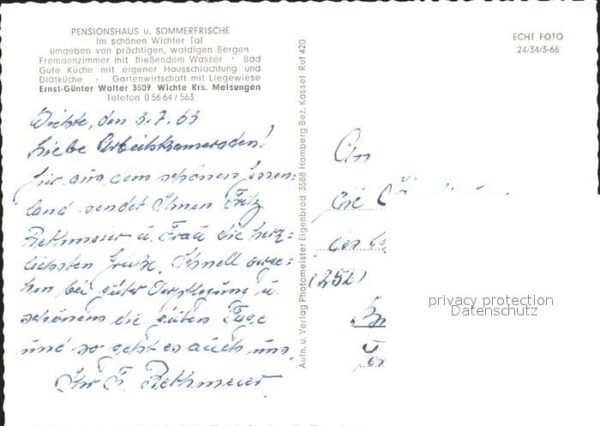 PENSIONSHAUS u. SOMMERFRISCHE
Im schönen Wichter Tal
umgeben von prächtigen, waldigen Bergen
Fremdenzimmer mit fließendem Wasser · Bad
Gute Küche mit eigener Hausschlachtung und
Diätküche · Gartenwirtschaft mit Liegewiese
Ernst-Günter Walter 3509 Wichte Krs. Melsungen
Telefon 0 56 64 / 563
ECHT FOTO
24/34/3-66
Wichte, den 3.7.63
Liebe Arbeitskameraden!
Hier aus dem schönen Hessen=
land sendet Ihnen Fritz
Rethmeier u. Frau die herz=
lichsten Grüße. Schnell verge=
hen bei guter Verpflegung u.
schönem die guten Tage
und so geht es auch uns.
Ihr F. Rethmeier
Aufn. u. Verlag Photomeister Eigenbrod 3588 Homberg Bez. Kassel Ruf 420
An
die
(252)
privacy protection
Datenschutz